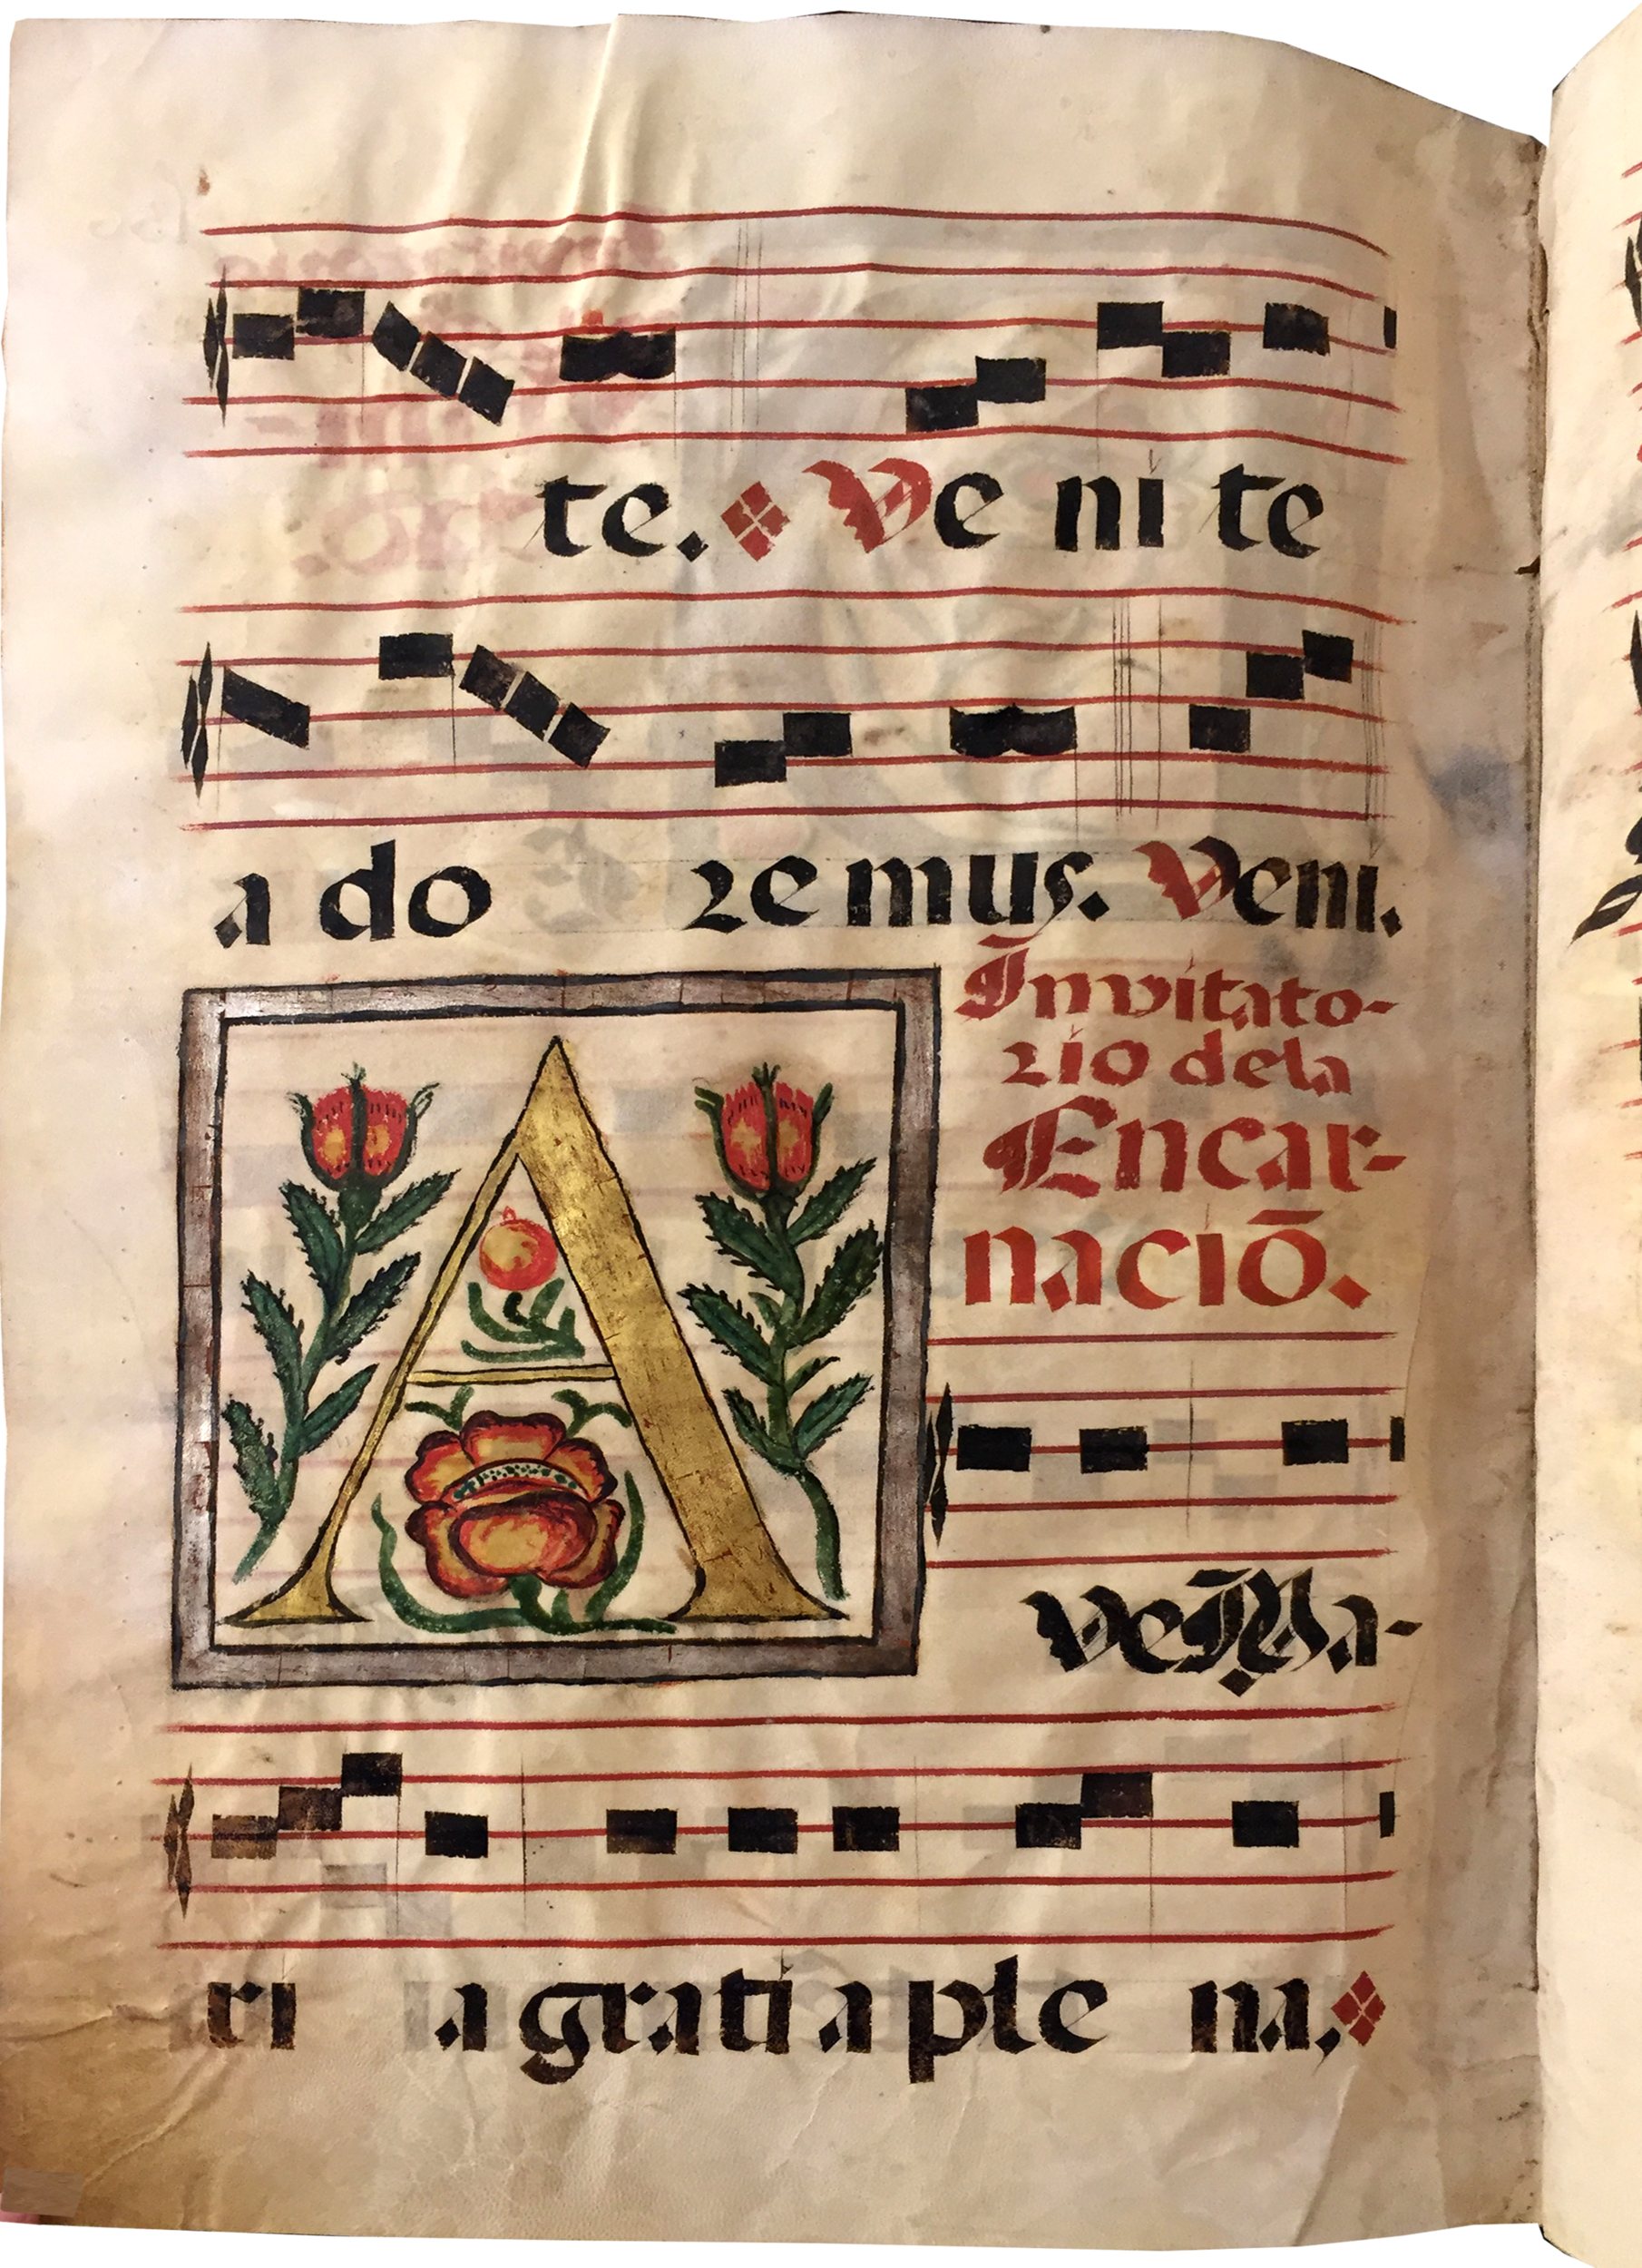 te. Ve ni te
a do re mus. Veni.
Invitato-
rio dela
Encar-
naciō.
A
ve Ma-
ri a gratia ple na.